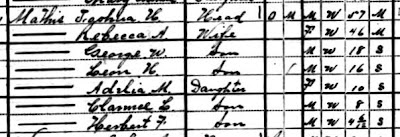 Mathis Joshua H. Head O M M W 57 M
Rebecca A. Wife F W 46 M
George W. Son M W 18 S
Leon H. Son M W 16 S
Adelia M. Daughter F W 10 S
Clarence L. Son M W 8 S
Herbert F. Son M W S